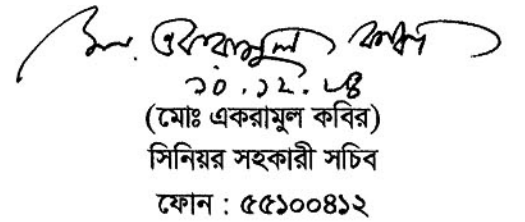 মোঃ একরামুল কবির
১০.১২.২৪
(মোঃ একরামুল কবির)
সিনিয়র সহকারী সচিব
ফোন : ৫৫১০০৪১২